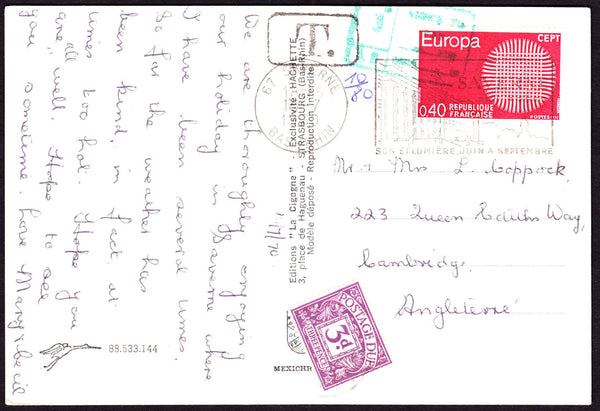 We are thoroughly enjoying
our holiday in Saverne where
I have been several times.
So far the weather has
been kind, in fact, at
times too hot. Hope you
are all well. Hope to see
you sometime. Love Mary & Cecil
88.533.144
Editions "La Cigogne" - Exclusivité HACHETTE
3, place de Haguenau - STRASBOURG (Bas-Rhin)
Modèle déposé - Reproduction Interdite
MEXICHR
1/7/70
T.
67
BAS-RHIN
10/80
Europa
CEPT
0,40
REPUBLIQUE
FRANÇAISE
POSTES
SON ET LUMIÈRE JUIN A SEPTEMBRE
Mr & Mrs L. Coppock,
223 Queen Ediths Way,
Cambridge,
Angleterre
POSTAGE DUE
3d
THREEPENCE